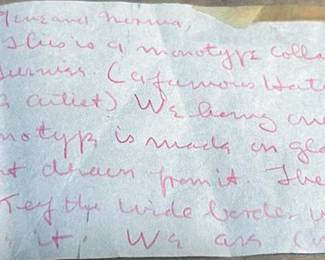 and Norma,
This is a monotype colla
(a famous
artist) We hung
notype is made on gla
t drawn from it. The
the wide border
it. We are